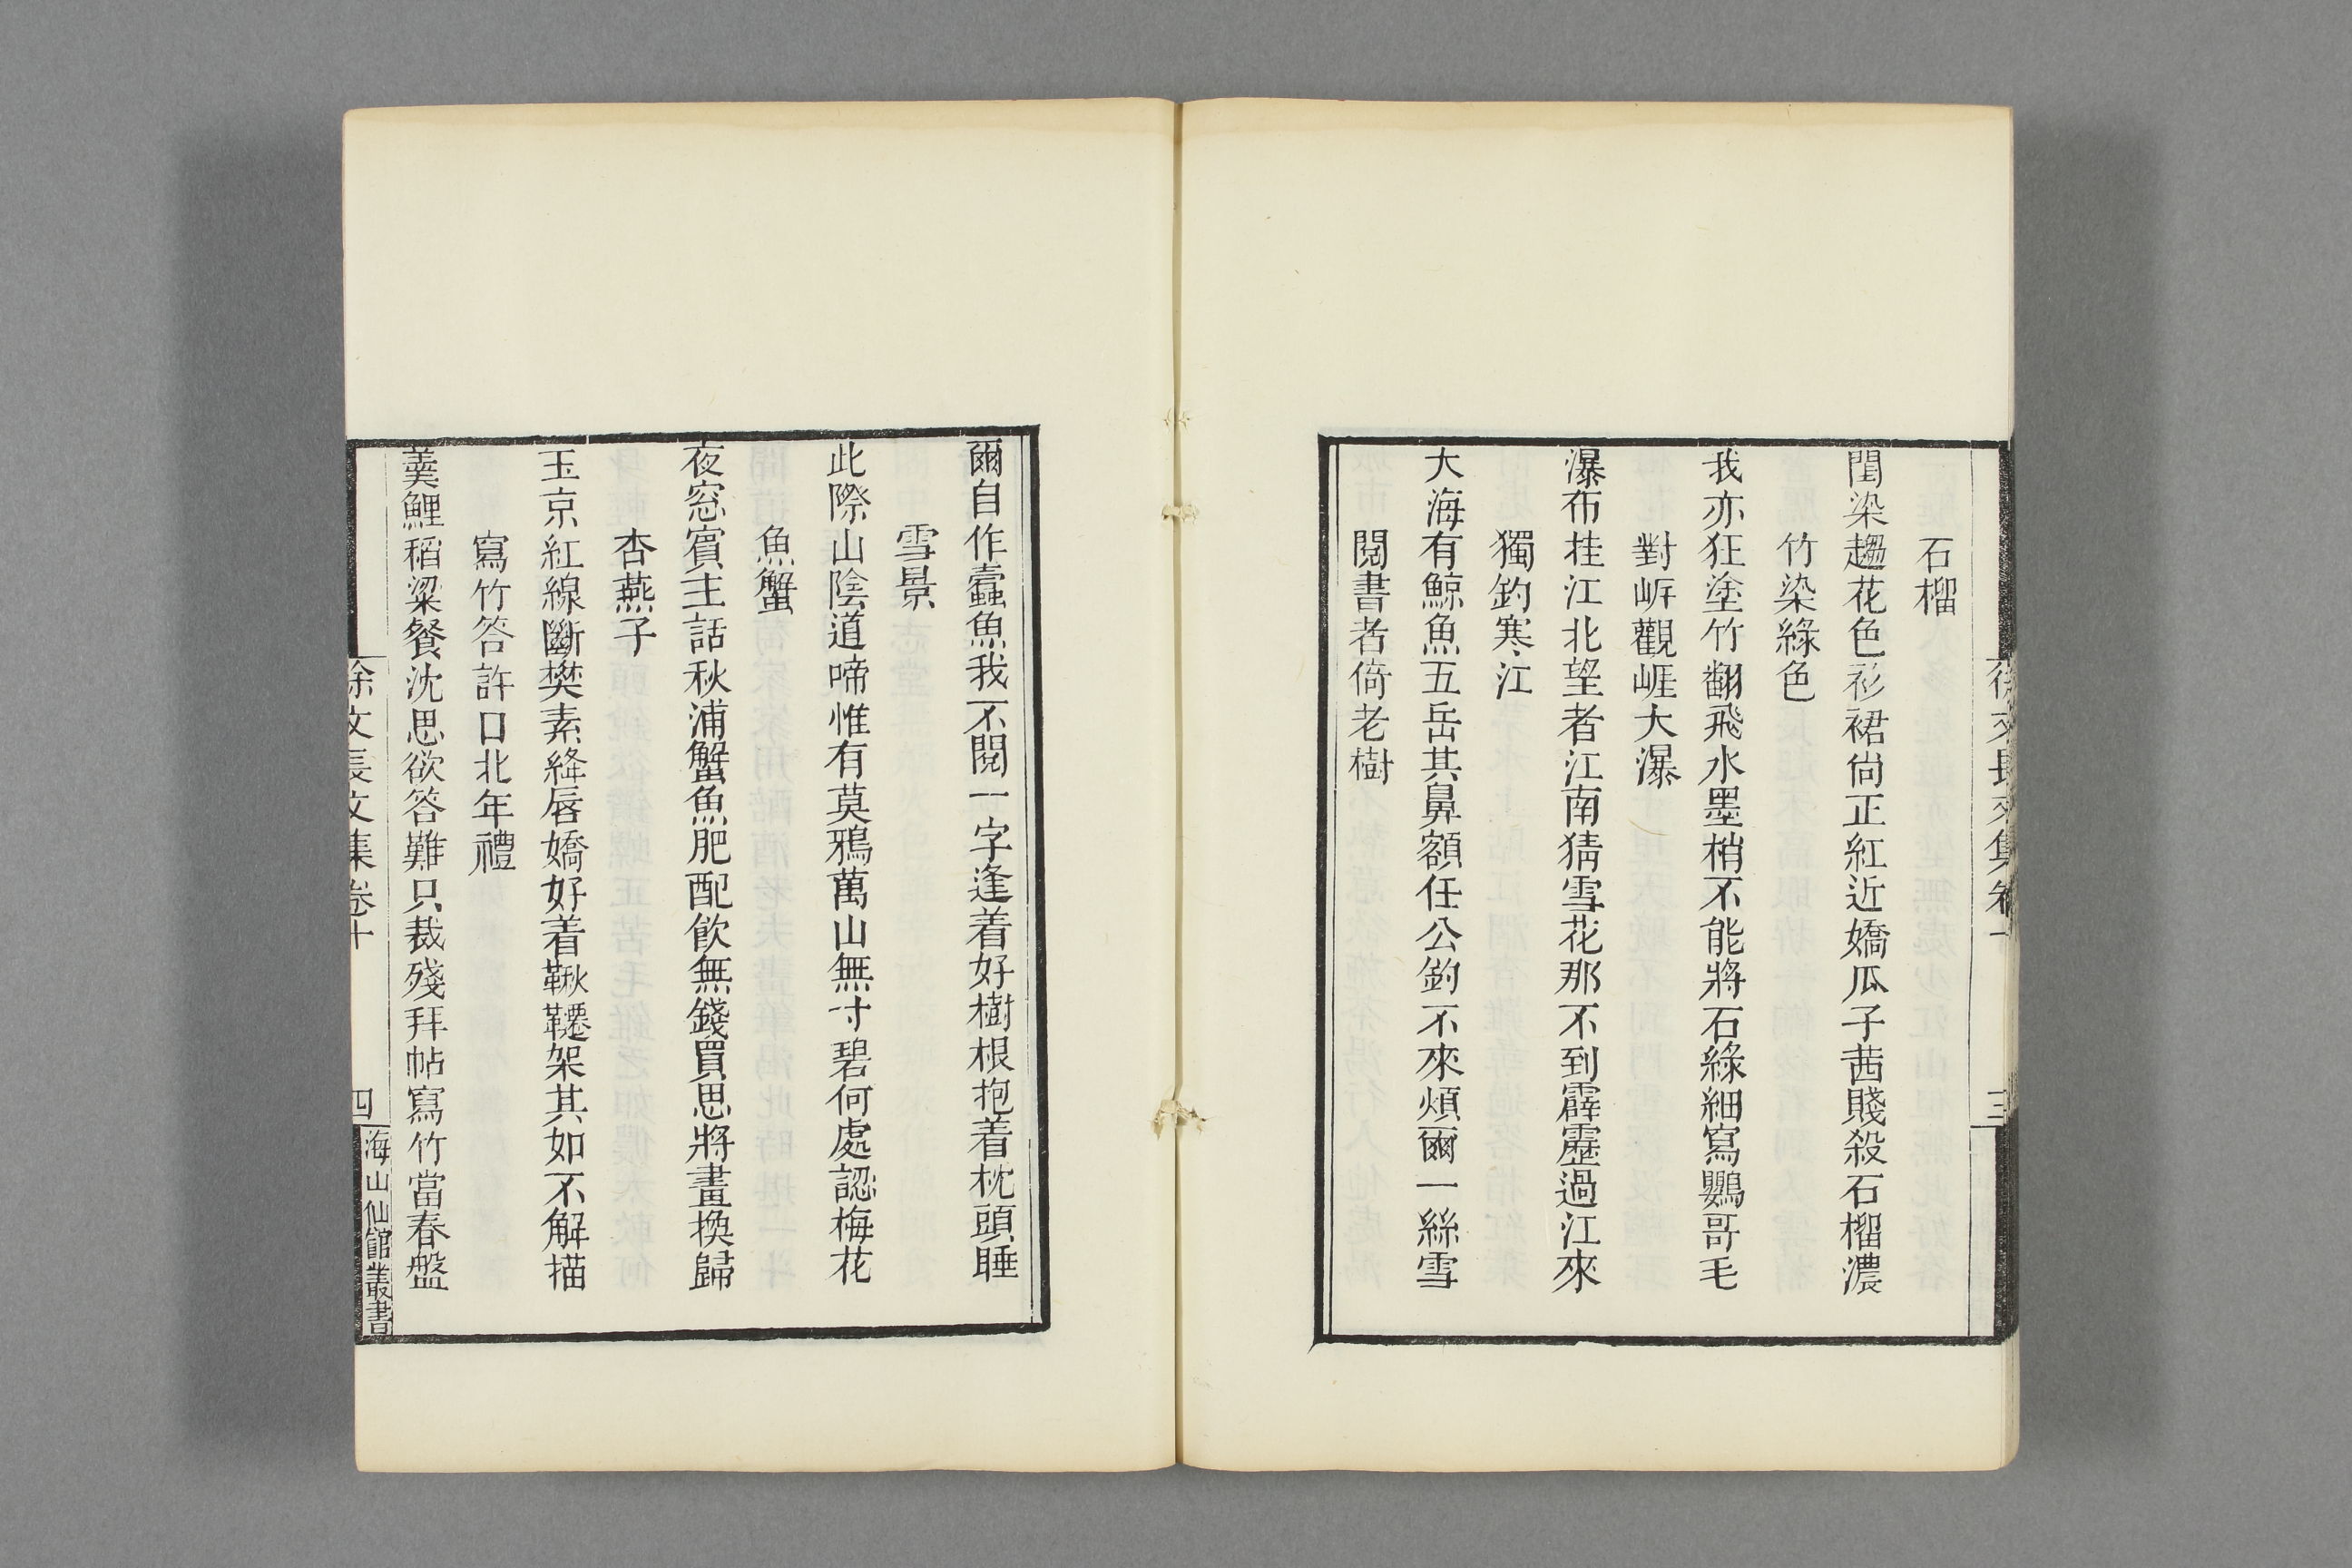 石榴
閨染趨花色衫裙尙正紅近嬌瓜子茜賤殺石榴濃
竹染綠色
我亦狂塗竹翻飛水墨梢不能將石綠細寫鸚哥毛
對㟁觀崕大瀑
瀑布挂江北望者江南猜雪花那不到霹靂過江來
獨釣寒江
大海有鯨魚五岳其鼻額任公釣不來煩爾一絲雪
閱書者倚老樹
徐文長文集卷十
三
爾自作蠹魚我不閱一字逢着好樹根抱着枕頭睡
雪景
此際山陰道啼惟有莫鴉萬山無寸碧何處認梅花
魚蟹
夜窓賓主話秋浦蟹魚肥配飮無錢買思將畫換歸
杏燕子
玉京紅線斷樊素絳唇嬌好着鞦韆架其如不解描
寫竹答許口北年禮
羹鯉稻粱餐沈思欲答難只裁殘拜帖寫竹當春盤
徐文長文集卷十
四
海山仙館叢書